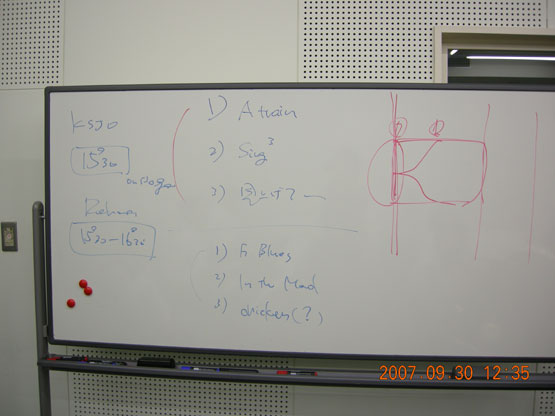 KSJO
15:30
on stage
15:30-16:30
1) A train
2) Sing³
3)
1) F Blues
2) In the Mood
3) chicken (?)
2007.09.30 12:35